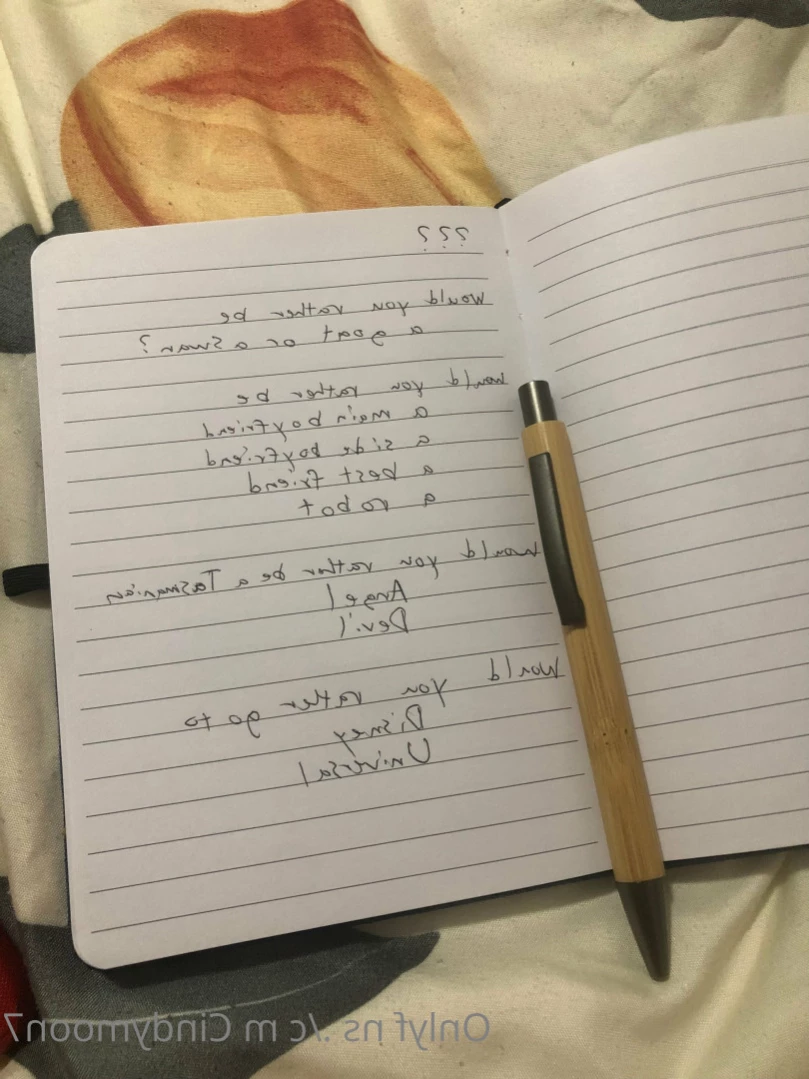 ???
Would you rather be
a goat or a swan?
Would you rather be
a main boyfriend
a side boyfriend
a best friend
a robot
Would you rather be a Tasmanian
Angel
Devil
Would you rather go to
Disney
Universal
Onlyf ns ./c m Cindymoon7